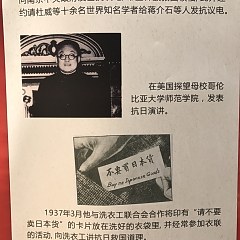 约请杜威等十余名世界知名学者给蒋介石等人发抗议电。
在美国探望母校哥伦
比亚大学师范学院，发表
抗日演讲。
不要買日本貨
Buy no Japanese Goods
1937年3月他与洗衣工联合会合作将印有“请不要
卖日本货”的卡片放在洗好的衣袋里，并经常参加衣联
的活动，向洗衣工讲抗日救国道理。